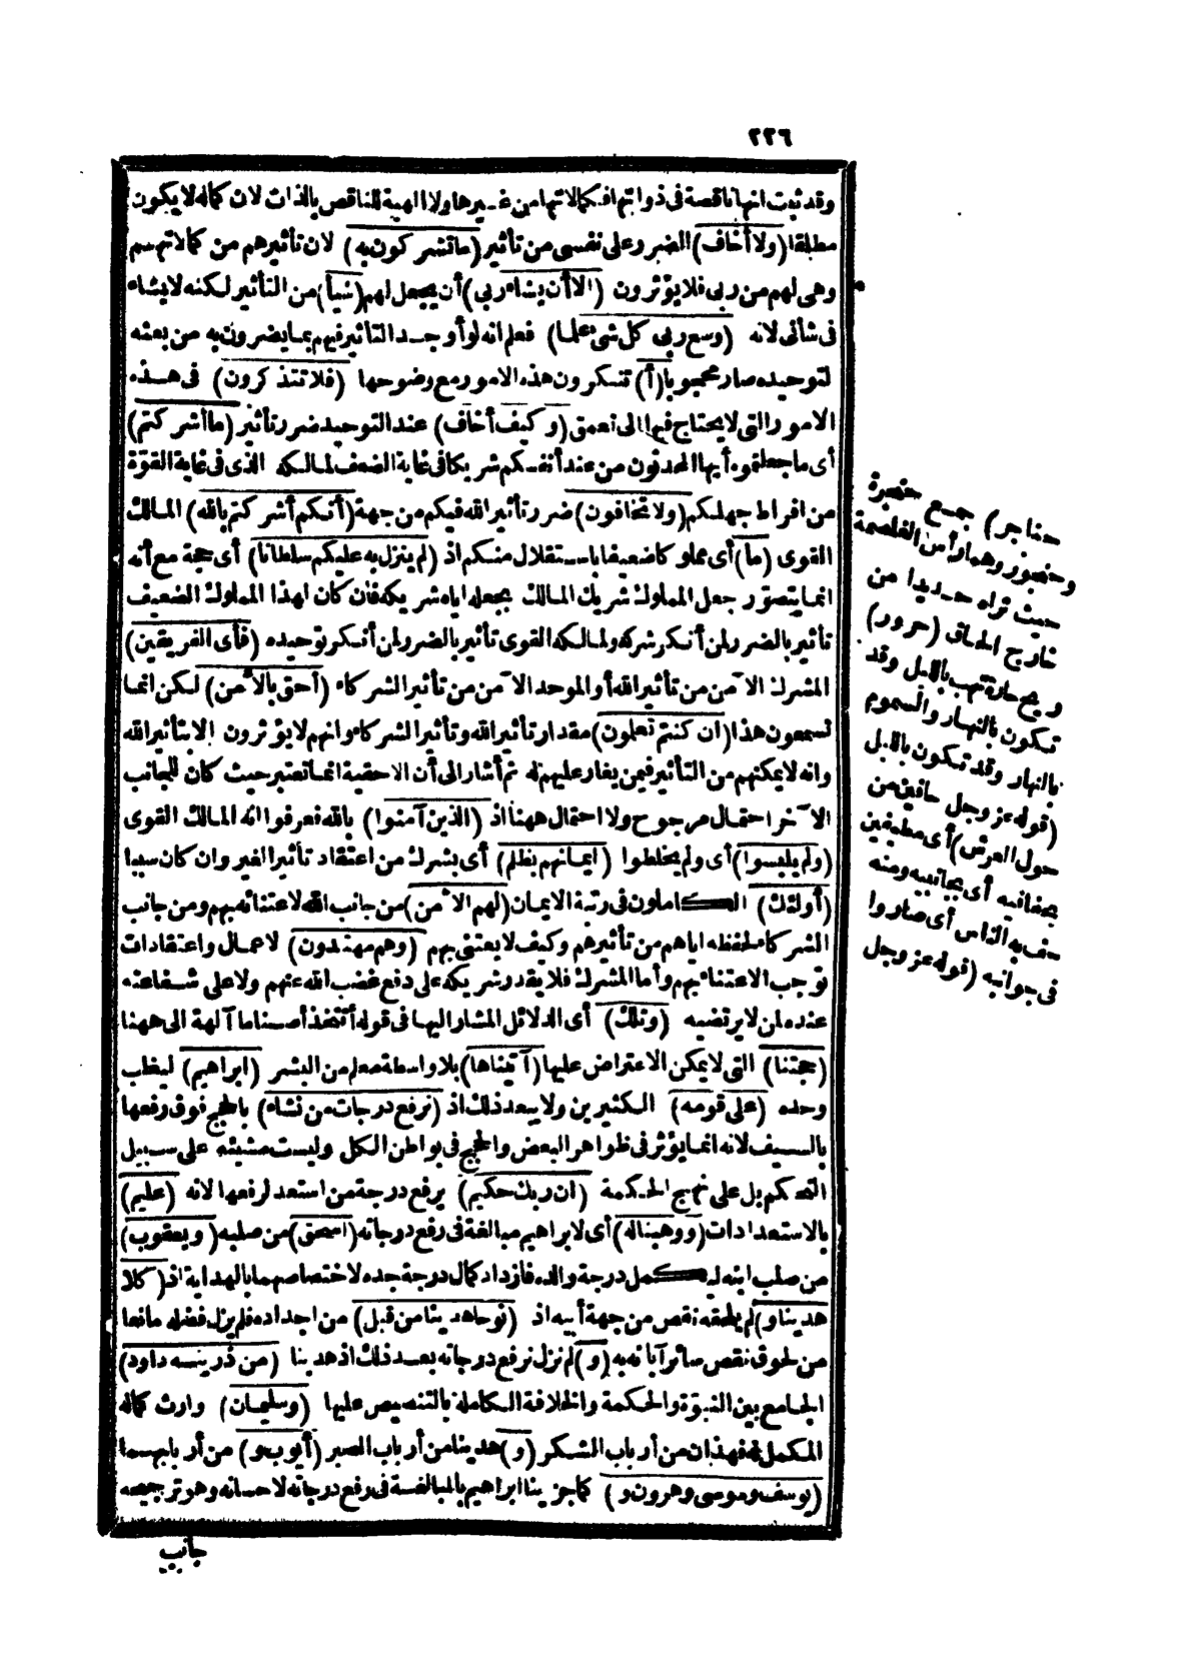 ٢٢٦
وقد ثبت انها ناقصة فى ذواتها فكمالاتها من غيرها ولا الهية للناقص بالذات لان كماله لا يكون
مطلقا (ولا أخاف) الضرر على نفسى من تأثير (ما تشركون به) لان تأثيرهم من كمالاتهم
وهى لهم من ربى فلا يؤثرون (الا أن يشاء ربى) أن يجعل لهم (شيأ) من التأثير لكنه لا يشاء
فى شأنى لانه (وسع ربى كل شئ علما) فعلم انه لو أوجد التأثير فيهم بما يضرون به من بعثه
لتوحيده صار محجوبا (أ) تنكرون هذه الامور مع وضوحها (فلا تتذكرون) فى هذه
الامور التى لا يحتاج فيها الى تعمق (وكيف أخاف) عند التوحيد ضرر تأثير (ما أشركتم)
أى ما جعلتموه أيها المحدثون من عند أنفسكم شريكا فى غاية الضعف لمالكه الذى فى غاية القوة
من افراط جهلكم (ولا تخافون) ضرر تأثير الله فيكم من جهة (أنكم أشركتم بالله) المالك
القوى (ما) أى مملوكا ضعيفا باستقلال منكم اذ (لم ينزل به عليكم سلطانا) أى حجة مع أنه
انما يتصور جعل المملوك شريك المالك بجعله اياه شريكه فان كان لهذا المملوك الضعيف
تأثير بالضرر لمن أنكر شركه ولمالكه القوى تأثير بالضرر لمن أنكر توحيده (فأى الفريقين)
المشرك الآمن من تأثير الله أو الموحد الآمن من تأثير الشركاء (أحق بالأمن) لكن انما
تسمعون هذا (ان كنتم تعلمون) مقدار تأثير الله وتأثير الشركاء وانهم لا يؤثرون الا بتأثير الله
وانه لا يمكنهم من التأثير فيمن يغار عليهم له ثم أشار الى أن الاحقية انما تعتبر حيث كان للجانب
الآخر احتمال مرجوح ولا احتمال ههنا اذ (الذين آمنوا) بالله فعرفوا انه المالك القوى
(ولم يلبسوا) أى ولم يخلطوا (ايمانهم بظلم) أى بشرك من اعتقاد تأثير الغير وان كان سببا
(أولئك) الكاملون فى رتبة الايمان (لهم الأمن) من جانب الله لاعتنائه بهم ومن جانب
الشركاء لحفظه اياهم من تأثيرهم وكيف لا يعتنى بهم (وهم مهتدون) لاعمال واعتقادات
توجب الاعتناء بهم وأما المشرك فلا يقدر شريكه على دفع غضب الله عنهم ولا على شفاعته
عنده لمن لا يرتضيه (وتلك) أى الدلائل المشار اليها فى قوله أتتخذ أصناما آلهة الى ههنا
(حجتنا) التى لا يمكن الاعتراض عليها (آتيناها) بلا واسطة معلم من البشر (ابراهيم) ليغلب
وحده (على قومه) الكثيرين ولا يبعد ذلك اذ (نرفع درجات من نشاء) بالحجج فوق رفعها
بالسيف لانه انما يؤثر فى ظواهر البعض والحجج فى بواطن الكل وليست مشيئته على سبيل
التحكم بل على نهج الحكمة (ان ربك حكيم) يرفع درجة من استعد لرفعها لانه (عليم)
بالاستعدادات (ووهبنا له) أى لابراهيم مبالغة فى رفع درجاته (اسحق) من صلبه (ويعقوب)
من صلب ابنه ليكمل درجة والده فازداد كمال درجة جده لاختصاصهما بالهداية اذ (كلا
هدينا و) لم يلحقه نقص من جهة أبيه اذ (نوحا هدينا من قبل) من اجداده فلم يزل فضله مانعا
من لحوق نقص سائر آبائه به (و) لم نزل نرفع درجاته بعد ذلك اذ هدينا (من ذريته داود)
الجامع بين النبوة والحكمة والخلافة الكاملة بالتنصيص عليها (وسليمان) وارث كماله
المكمل له فهذان من أرباب الشكر (و) هدينا من أرباب الصبر (أيوب و) من أربابهما
(يوسف وموسى وهرون و) كما جزينا ابراهيم بالمبالغة فى رفع درجاته لاحسانه وهو ترجيحه
جانب
حناجر) جمع حنجرة
وحنجور وهما رأس الغلصمة
حيث تراه حديدا من
خارج الحلق (حرور)
ريح حارة تهب بالليل وقد
تكون بالنهار والسموم
بالنهار وقد تكون بالليل
(قوله عز وجل حافين من
حول العرش) أى مطيفين
بحفافيه أى بجانبيه ومنه
حف به الناس أى صاروا
فى جوانبه (قوله عز وجل